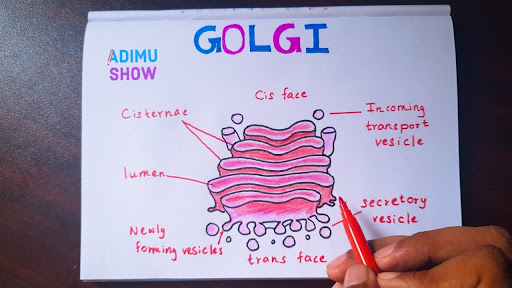 GOLGI
ADIMU
SHOW
Cis face
Cisternae
Incoming
transport
vesicle
lumen
secretory
vesicle
Newly
forming vesicles
trans face